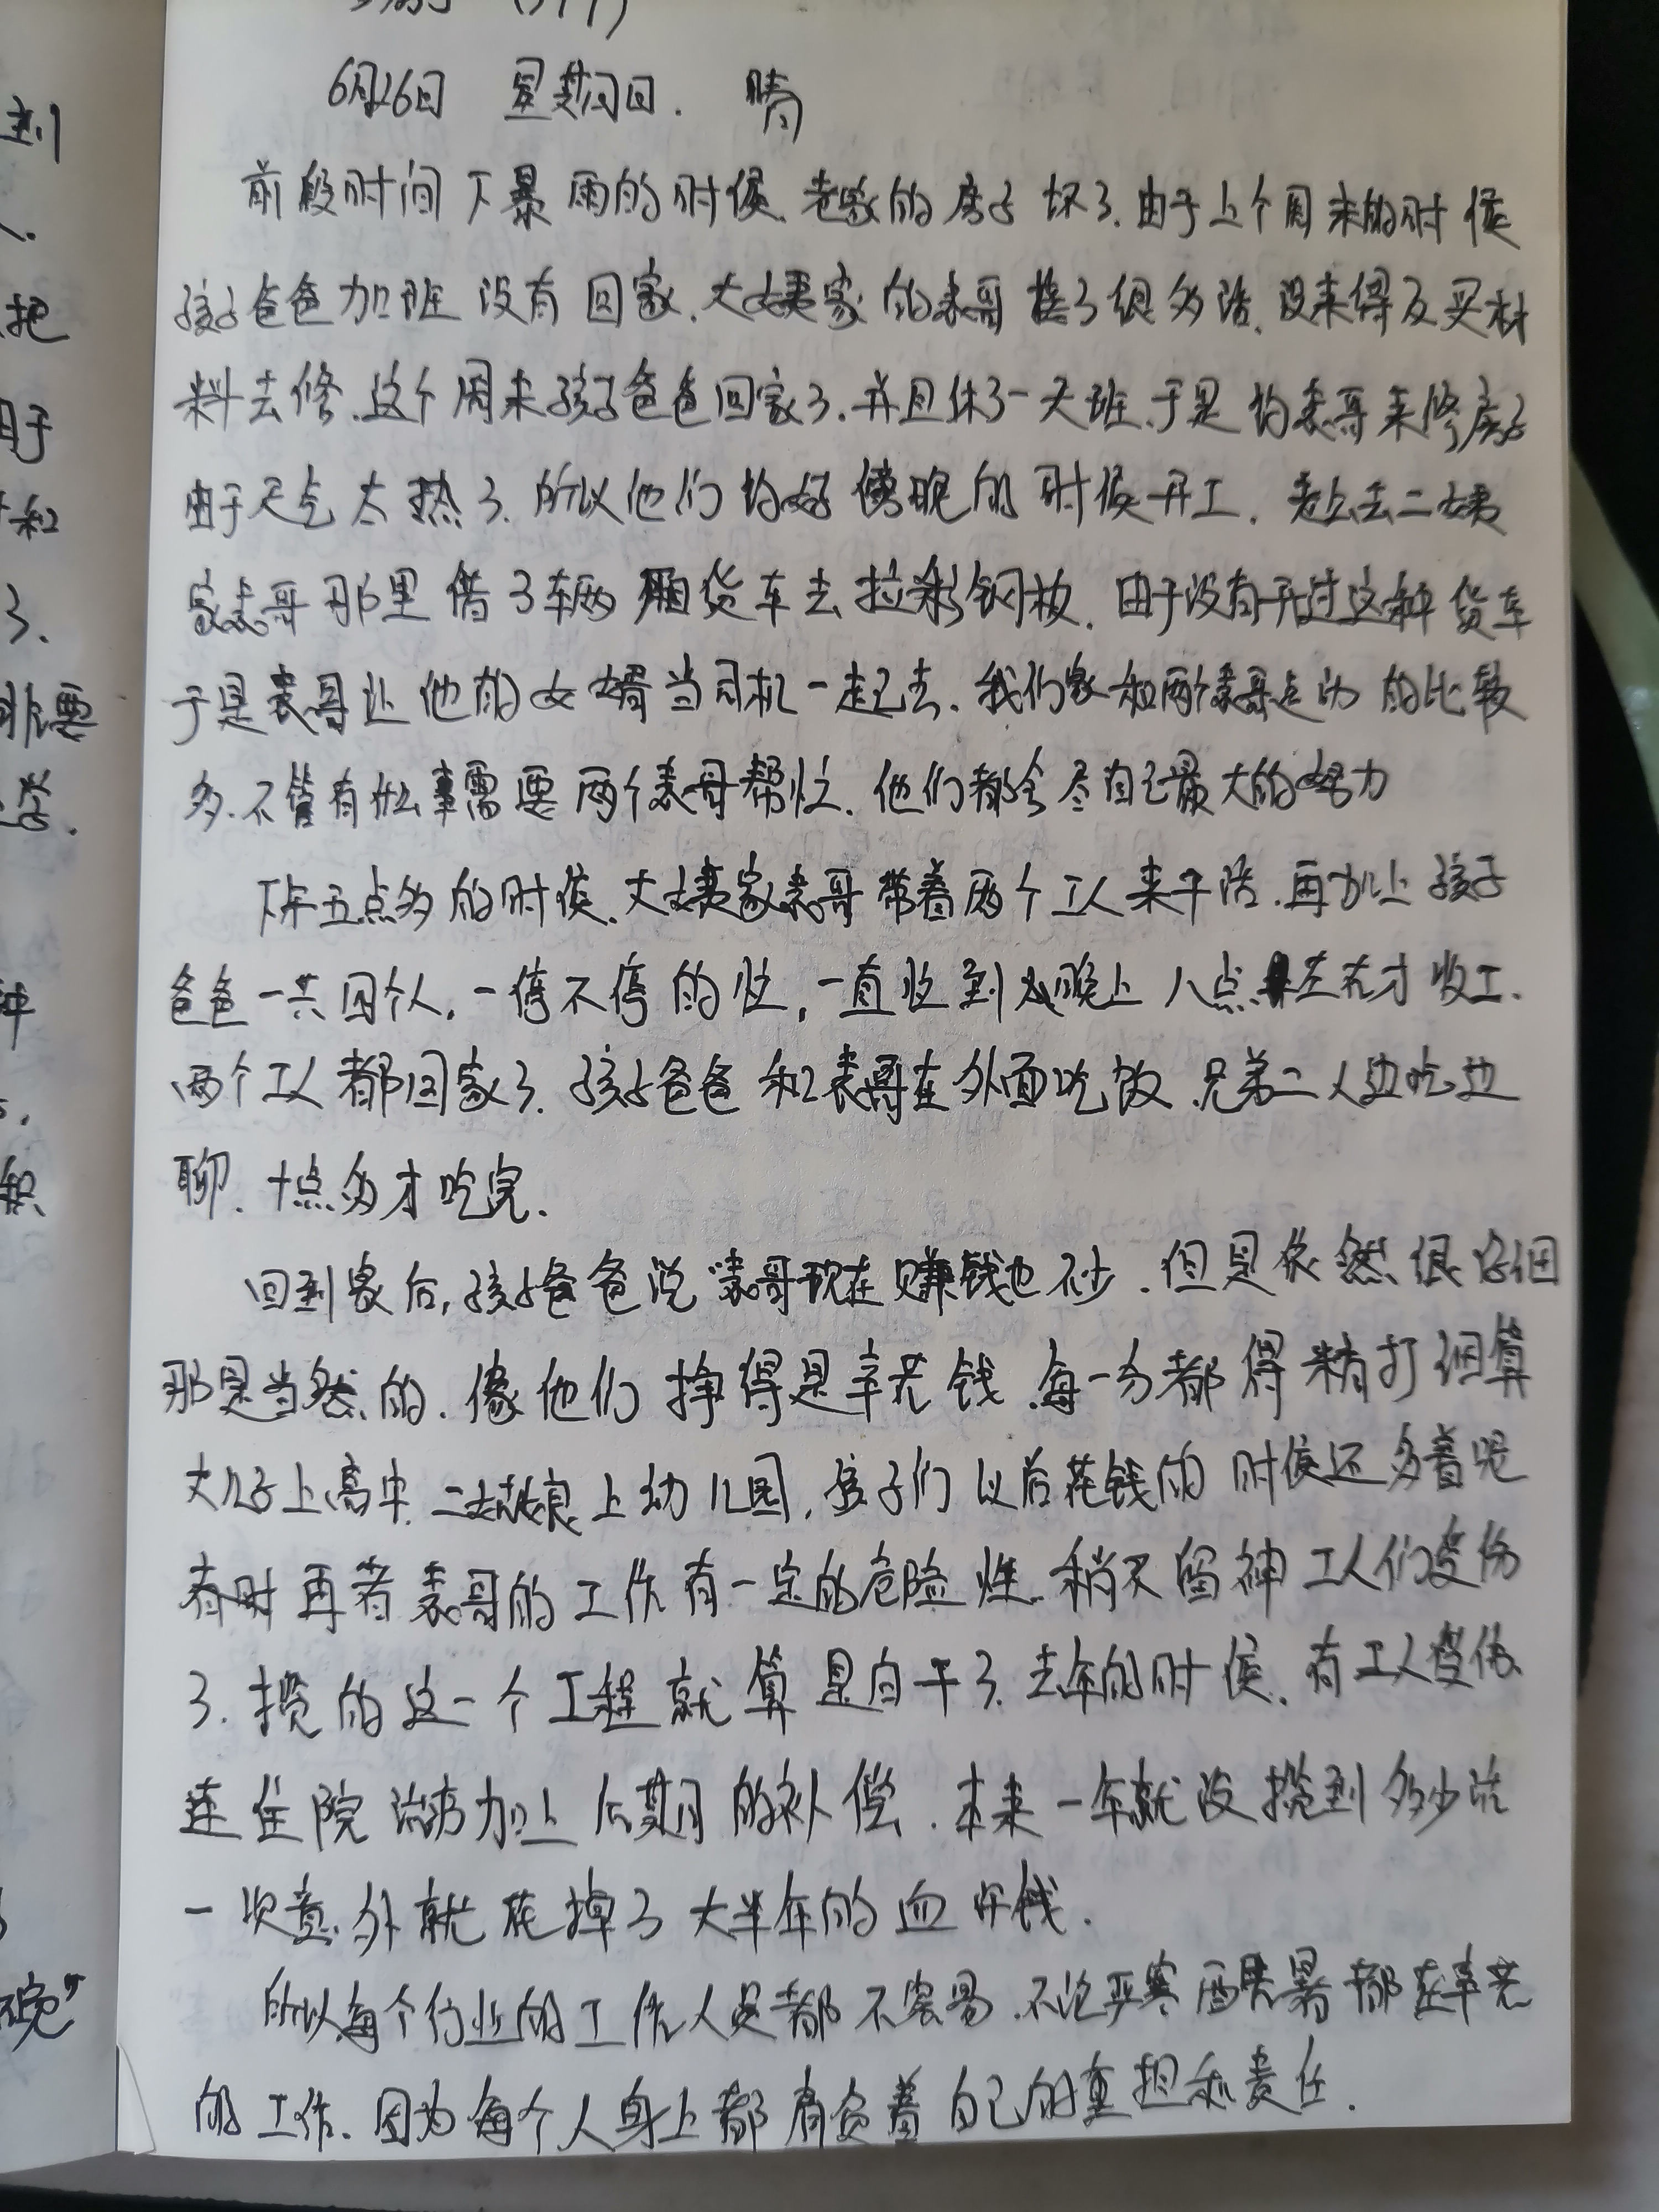 6月26日 星期日. 晴
前段时间下暴雨的时候、老家的房子坏了.由于上个周末的时候
孩子爸爸加班没有回家.大姨家的表哥接了很多活、没来得及买材
料去修.这个周末孩子爸爸回家了.并且休了一天班.于是约表哥来修房子
由于天气太热了.所以他们约好傍晚的时候开工.老公去二姨
家表哥那里借了车两 货车去拉彩钢板.由于没有开过这种货车
于是表哥让他的女婿当司机一起去.我们家和两个表哥走动的比较
多.不管有什么事需要两个表哥帮忙.他们都会尽自己最大的努力
下午五点多的时候.大姨家表哥带着两个工人来干活.再加上孩子
爸爸一共四个人.一停不停的忙,一直忙到晚上八点左右才收工.
两个工人都回家了.孩子爸爸和表哥在外面吃饭.兄弟二人边吃边
聊.十点多才吃完.
回到家后,孩子爸爸说表哥现在赚钱也不少.但是依然很仔细
那是当然的.像他们挣得是辛苦钱.每一分都得精打细算
大儿子上高中.二姑娘上幼儿园,孩子们以后花钱的时候还多着呢
有时再者表哥的工作有一定的危险性.稍不留神工人们受伤
了.揽的这一个工程就算是白干了.去年的时候.有工人受伤
连住院治病加上后期的补偿.本来一年就没揽到多少活
一次意外就花掉了大半年的血汗钱.
所以每个行业的工作人员都不容易.不论严寒酷暑都在辛苦
的工作.因为每个人身上都肩负着自己的重担和责任.
到
把
和
了.
非要
种
晚”